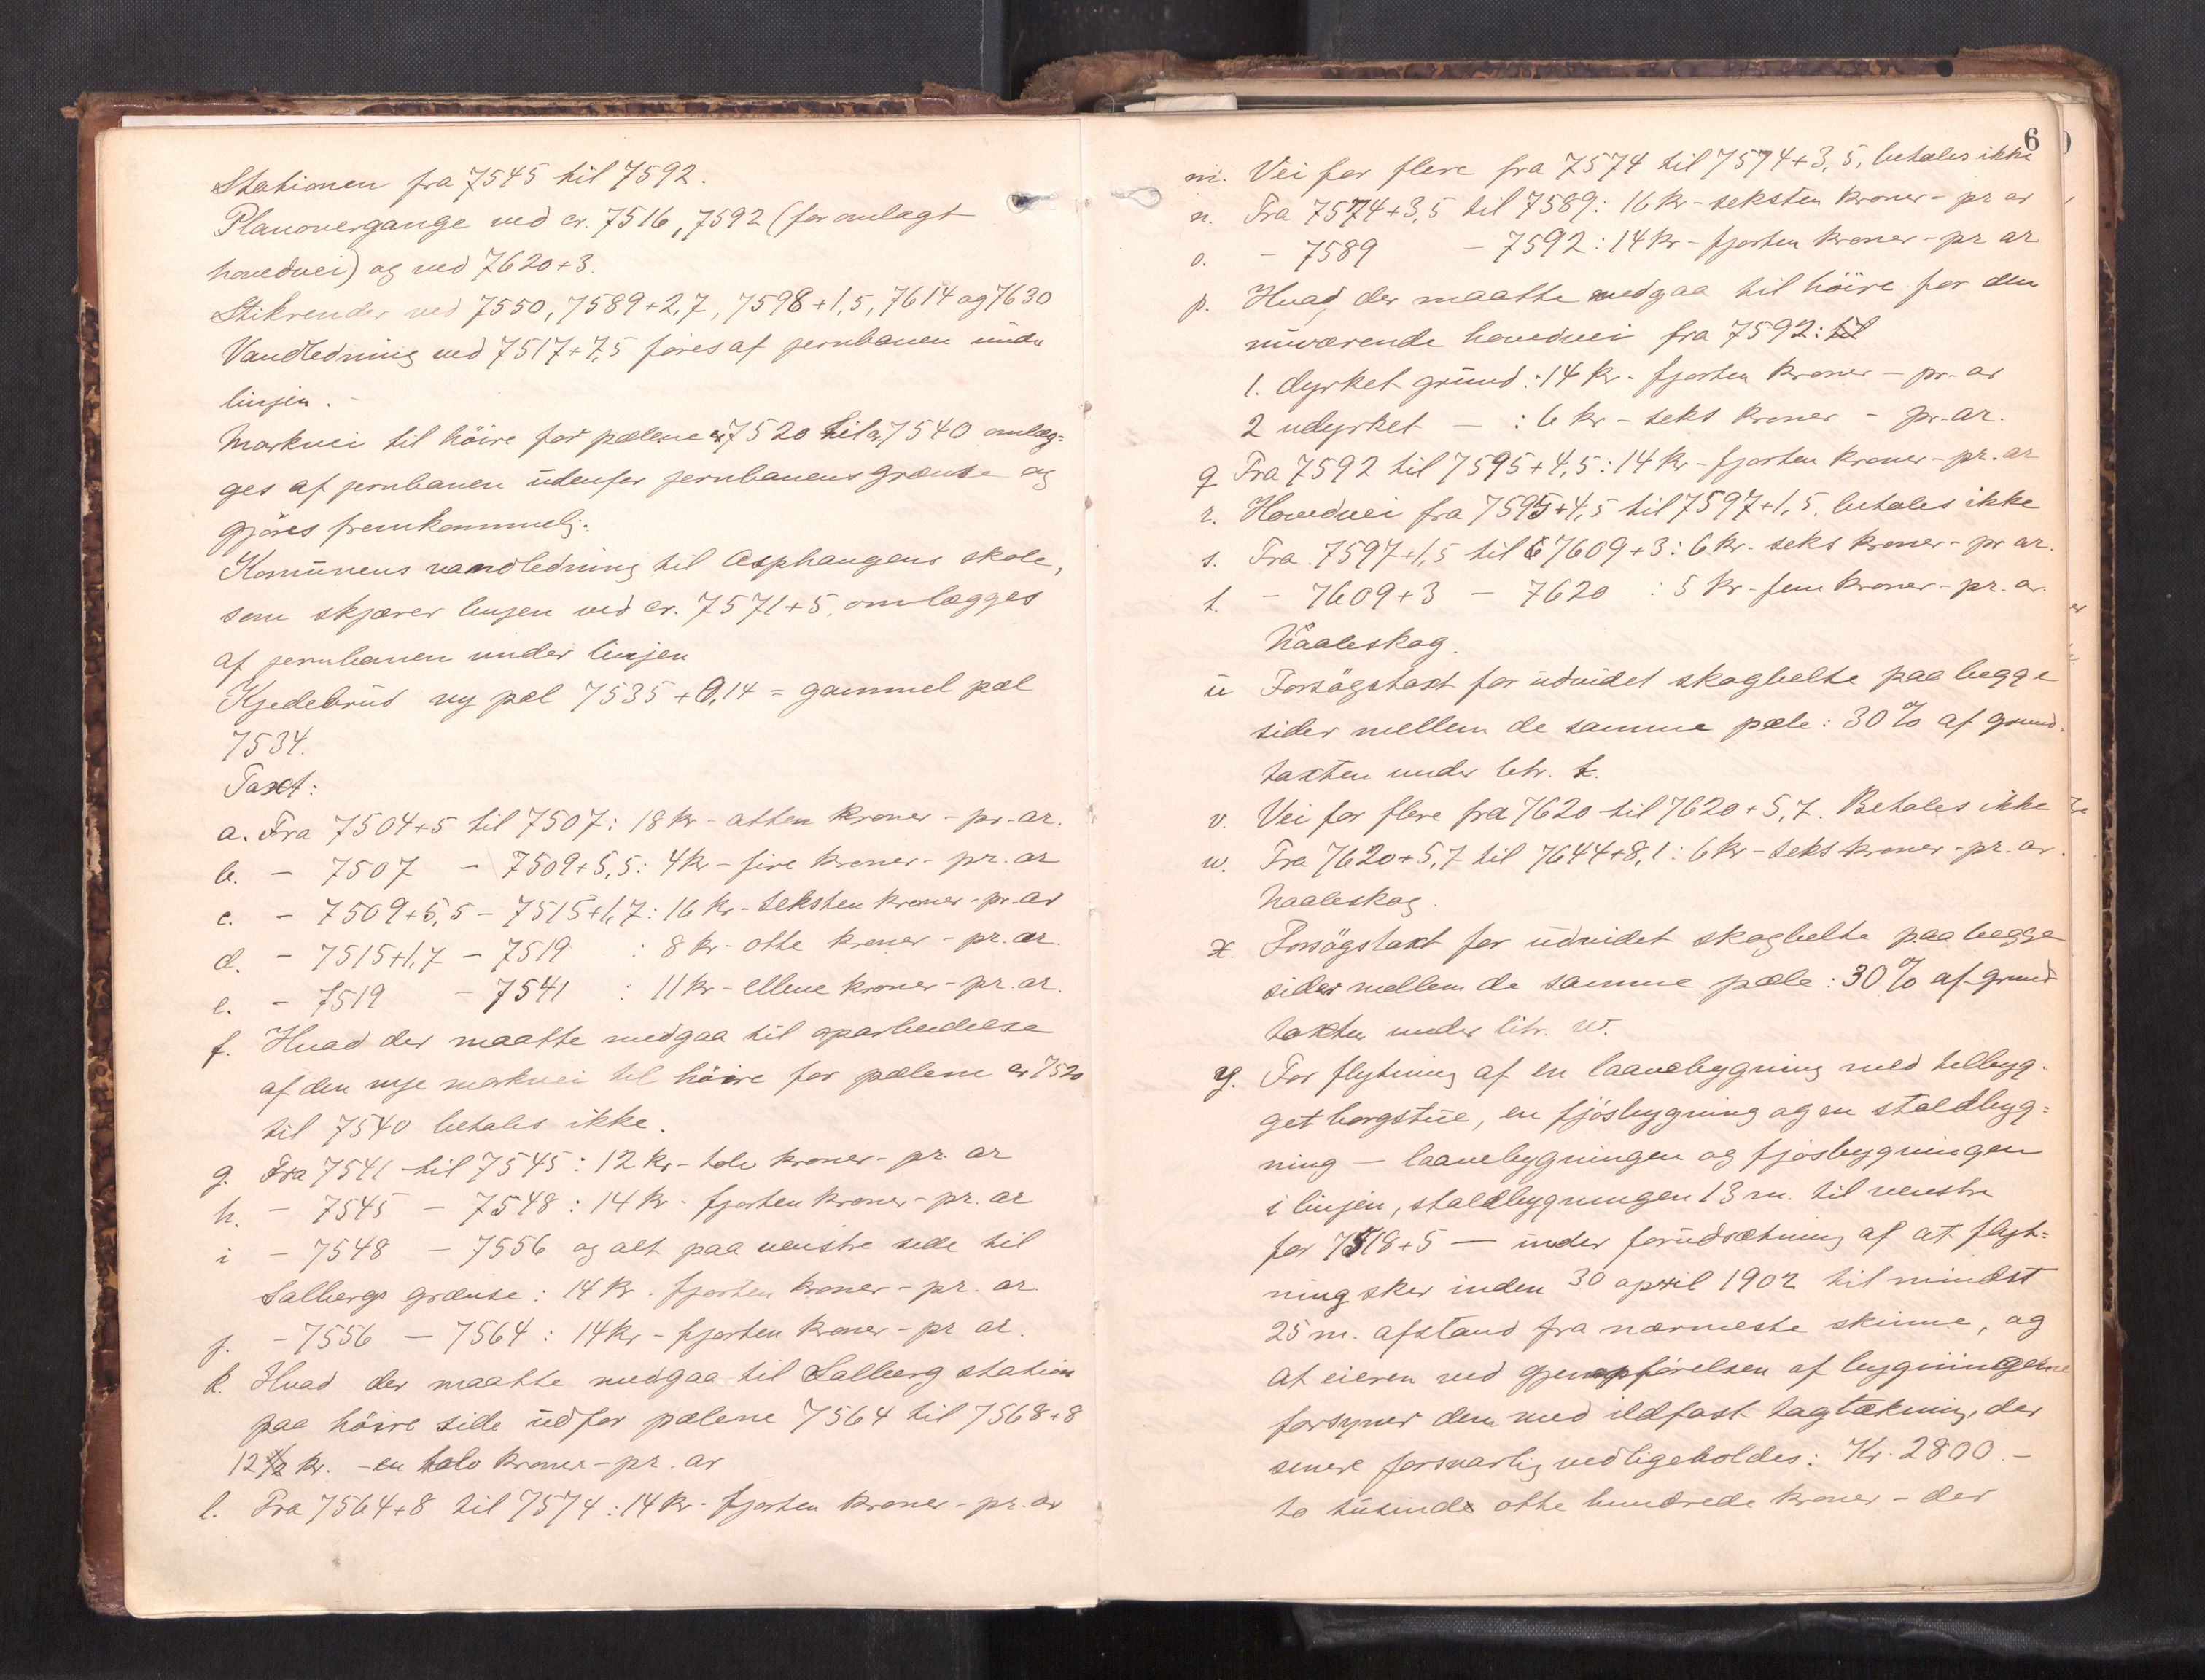 Stationen fra 7545 til 7592.
Planovergange ved cr. 7516, 7592 (for omlagt
hovedvei) og ved 7620+3.
Stikrender ved 7550, 7589+2,7, 7598+1,5, 7614 og 7630
Vandledning ved 7517+7,5 føres af jernbanen under
linjen. -
Markvei til höire for pælene cr 7520 til cr 7540 omlæg=
ges af jernbanen udenfor jernbanens grænse og
gjöres fremkommelig.
Komunens vandledning til Asphaugens skole,
som skjærer linjen ved cr. 7571+5, omlægges
af jernbanen under linjen
Kjedebrud ny pæl 7535 + 0,14 = gammel pæl
7534.
Taxt:
a. Fra 7504+5 til 7507: 18 kr - atten kroner - pr. ar.
b. - 7507 - 7509+5,5: 4 kr - fire kroner - pr. ar
c. - 7509+5,5 - 7515+1,7: 16 kr - seksten kroner - pr. ar
d. - 7515+1,7 - 7519 : 8 kr - otte kroner - pr. ar.
e. - 7519 - 7541 : 11 kr - elleve kroner - pr. ar.
f. Hvad der maatte medgaa til oparbeidelse
af den nye markvei til höire for pælene cr 7520
til 7540 betales ikke.
g. Fra 7541 til 7545: 12 kr - tolv kroner - pr. ar
h. - 7545 - 7548: 14 kr - fjorten kroner - pr. ar
i - 7548 - 7556 og alt paa venstre side til
Salbergs grænse: 14 kr. fjorten kroner - pr. ar
j. - 7556 - 7564: 14 kr - fjorten kroner - pr ar.
k. Hvad der maatte medgaa til Salberg station
paa höire side udfor pælene 7564 til 7568+8
12 kr. - tolv kroner - pr. ar
l. Fra 7564+8 til 7574: 14 kr - fjorten kroner - pr. ar
6
m. Vei for flere fra 7574 til 7574+3,5, betales ikke
n. Fra 7574+3,5 til 7589: 16 kr - seksten kroner - pr ar
o. - 7589 - 7592: 14 kr - fjorten kroner - pr ar
p. Hvad der maatte medgaa til höire for den
nuværende hovedvei fra 7592: til
1. dyrket grund: 14 kr - fjorten kroner - pr. ar
2 udyrket - : 6 kr - seks kroner - pr. ar.
q Fra 7592 til 7595+4,5: 14 kr - fjorten kroner - pr. ar
r. Hovedvei fra 7595+4,5 til 7597+1,5, betales ikke
s. Fra 7597+1,5 til 7609+3: 6 kr. seks kroner - pr ar.
t. - 7609+3 - 7620 : 5 kr - fem kroner - pr. ar.
Naaleskog.
u Forsögstaxt for udvidet skogbelte paa begge
sider mellem de samme pæle: 30% af grund-
taxten under litr. t.
v. Vei for flere fra 7620 til 7620+5,7. Betales ikke
w. Fra 7620+5,7 til 7644+8,1: 6 kr - seks kroner - pr. ar.
Naaleskog.
x. Forsögstaxt for udvidet skogbelte paa begge
sider mellem de samme pæle: 30% af grund
taxten under litr. w.
y. For flytning af en laavebygning med tilbyg-
get borgstue, en fjösbygning og en staldbyg=
ning - laavebygningen og fjösbygningen
i linjen, staldbygningen 13 m. til venstre
for 7518+5 - under forudsætning af at flyt=
ning sker inden 30 april 1902 til mindst
25 m. afstand fra nærmeste skinne, og
at eieren ved gjenopförelsen af bygningerne
forsyner dem med ildfast tagtækning, der
senere forsvarlig vedligeholdes: Kr. 2800. -
to tusinde otte hundrede kroner - der